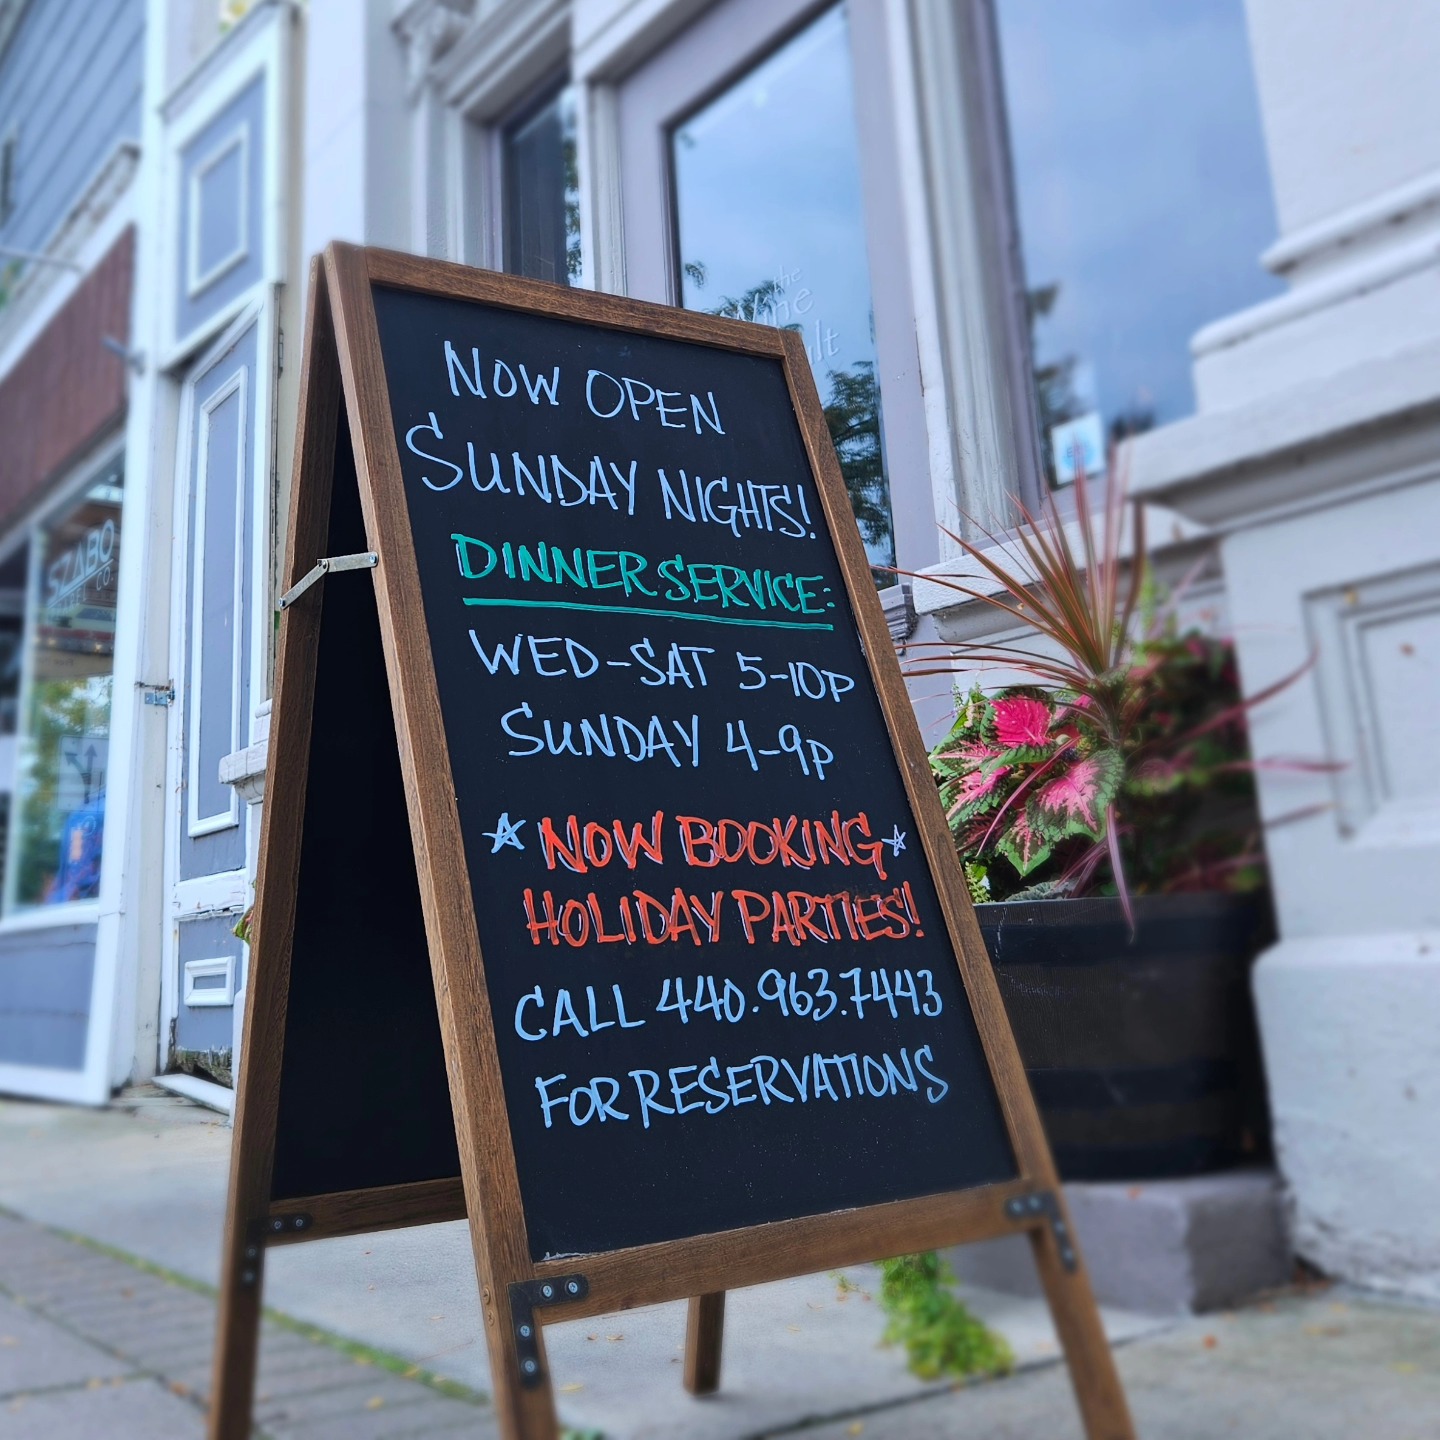 NOW OPEN
SUNDAY NIGHTS!
DINNER SERVICE:
WED-SAT 5-10P
SUNDAY 4-9P
☆ NOW BOOKING ☆
HOLIDAY PARTIES!
CALL 440.963.7443
FOR RESERVATIONS
the
SZABO
CO.